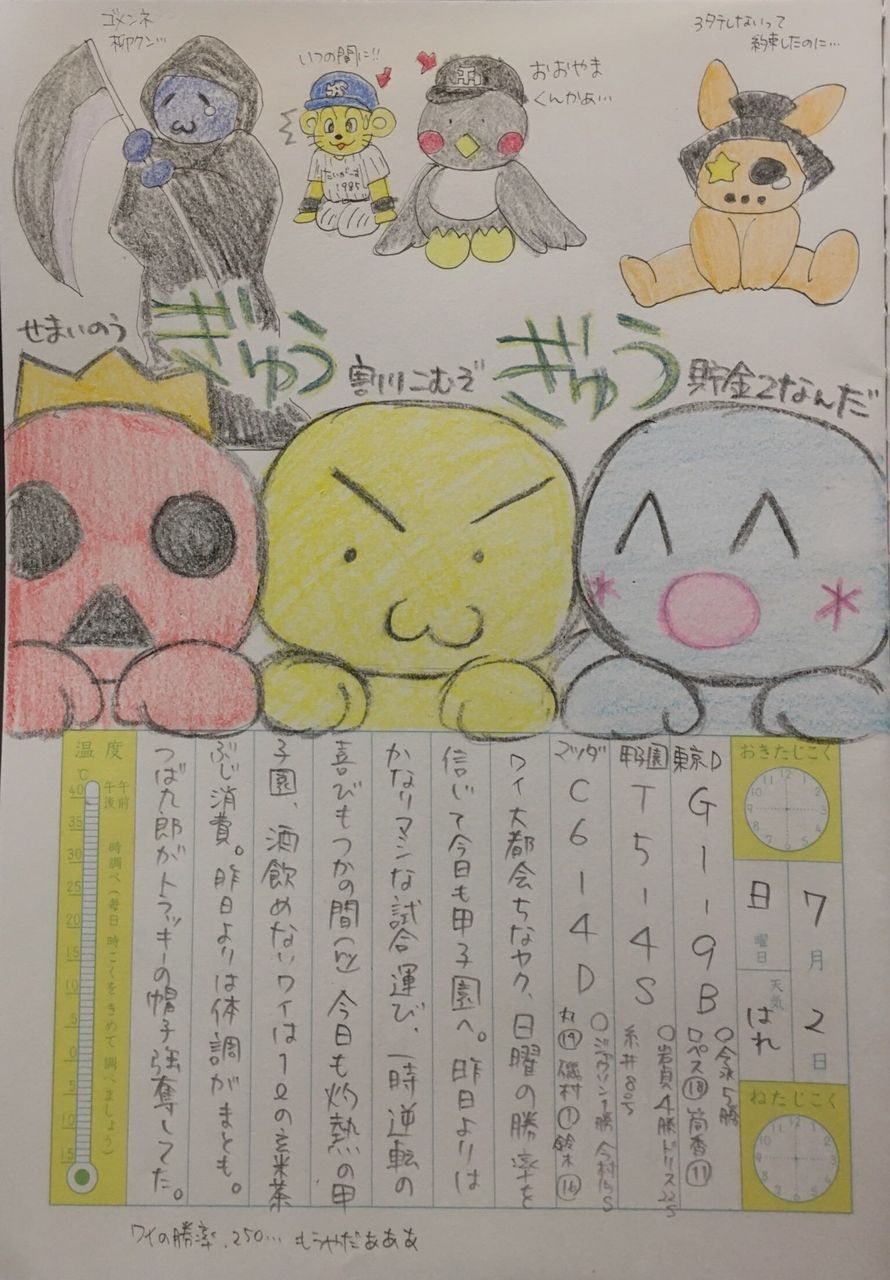 ゴメンネ
柳クン…
いつの間に!!
おおやま
くんかぁ…
3タテしないって
約束したのに…
たいがーす
1985
せまいのう
ぎゅう
割りこむぞ
ぎゅう
貯金2なんだ
おきたじこく
7月2日
日曜日
天気 はれ
ねたじこく
東京D G1-9B
○今永5勝
ロペス⑱ 筒香⑪
甲子園 T5-4S
○岩貞4勝ドリス22S
糸井805
マツダ C6-4D
今村15S
丸⑭ 磯村① 鈴木⑯
ワイ大都会ちなヤク、日曜の勝率を
信じて今日も甲子園へ。昨日よりは
かなりマシンな試合運び、一時逆転の
喜びもつかの間(ry 今日も灼熱の甲
子園、酒飲めないワイは1ℓの玄米茶
ぶじ消費。昨日よりは体調がまとも。
つば九郎がトラッキーの帽子強奪してた。
温度
℃
午前
午後
時調べ(毎日 時こくをきめて 調べましょう)
40
35
30
25
20
15
10
5
0
5
10
15
ワイの勝率.250… もうやだぁぁぁ